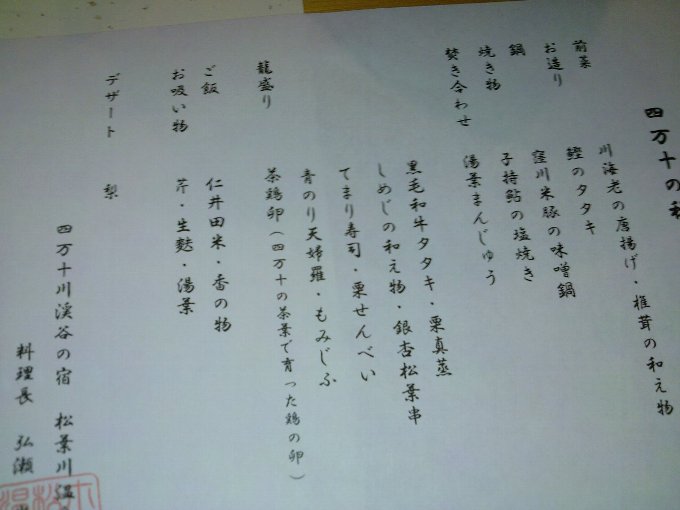 四万十の
前菜 川海老の唐揚げ・椎茸の和え物
お造り 鰹のタタキ
鍋 窪川米豚の味噌鍋
焼き物 子持鮎の塩焼き
焚き合わせ 湯葉まんじゅう
籠盛り 黒毛和牛タタキ・栗真蒸
しめじの和え物・銀杏松葉串
てまり寿司・栗せんべい
青のり天婦羅・もみじふ
茶鶏卵(四万十の茶葉で育った鶏の卵)
ご飯 仁井田米・香の物
お吸い物 芹・生麩・湯葉
デザート 梨
四万十川渓谷の宿 松葉川温
料理長 弘瀬